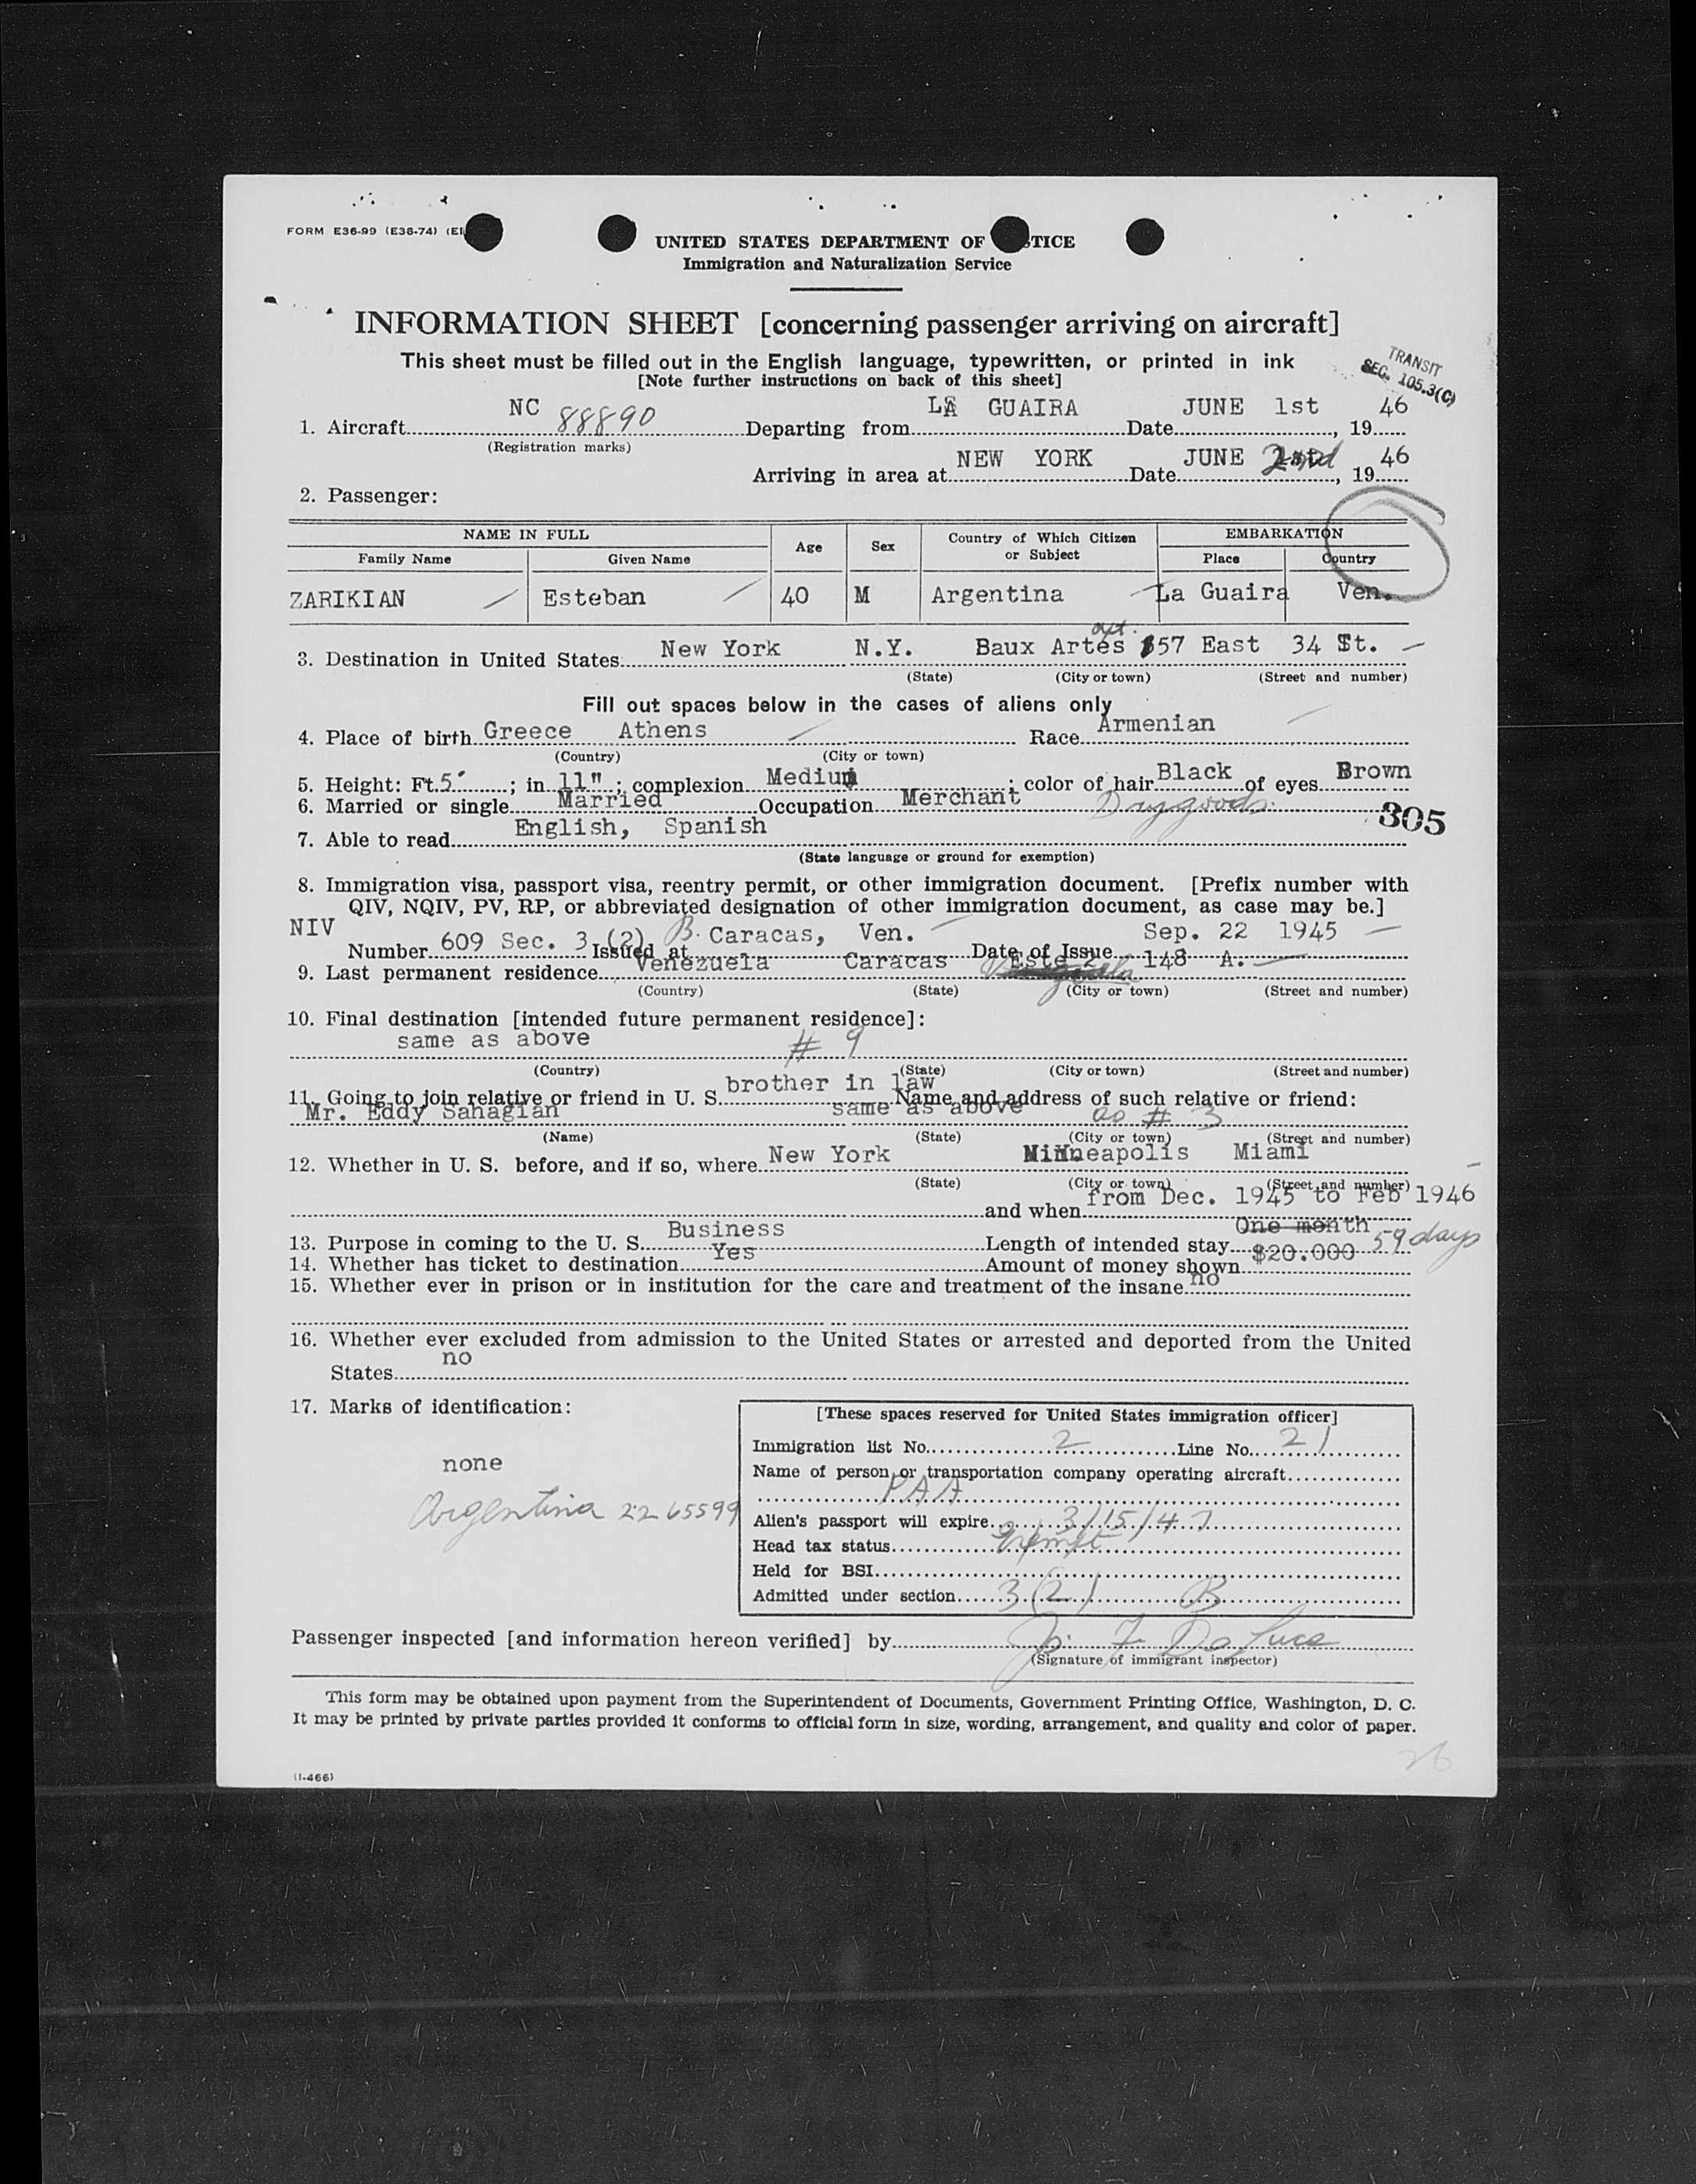 FORM E36-99 (E36-74) (E
UNITED STATES DEPARTMENT OF TICE
Immigration and Naturalization Service
INFORMATION SHEET [concerning passenger arriving on aircraft]
This sheet must be filled out in the English language, typewritten, or printed in ink
[Note further instructions on back of this sheet]
TRANSIT
SEC. 105.3(C)
1. Aircraft NC 88890 Departing from LA GUAIRA Date JUNE 1st, 1946
(Registration marks)
Arriving in area at NEW YORK Date JUNE 2nd, 1946
2. Passenger:
NAME IN FULL Age Sex Country of Which Citizen or Subject EMBARKATION
Family Name Given Name Place Country
ZARIKIAN Esteban 40 M Argentina La Guaira Ven.
3. Destination in United States New York N.Y. Baux Artes apt. 57 East 34 St.
(State) (City or town) (Street and number)
Fill out spaces below in the cases of aliens only
4. Place of birth Greece Athens Race Armenian
(Country) (City or town)
5. Height: Ft. 5' ; in. 11" ; complexion Medium ; color of hair Black of eyes Brown
6. Married or single Married Occupation Merchant Drygoods
305
7. Able to read English, Spanish
(State language or ground for exemption)
8. Immigration visa, passport visa, reentry permit, or other immigration document. [Prefix number with
QIV, NQIV, PV, RP, or abbreviated designation of other immigration document, as case may be.]
NIV
Number 609 Sec. 3 (2) B. Issued at Caracas, Ven. Date of Issue Sep. 22 1945
9. Last permanent residence Venezuela Caracas Este 2 148 A.
(Country) (State) (City or town) (Street and number)
10. Final destination [intended future permanent residence]:
same as above # 9
(Country) (State) (City or town) (Street and number)
11. Going to join relative or friend in U. S. brother in law Name and address of such relative or friend:
Mr. Eddy Sahagian same as above as # 3
(Name) (State) (City or town) (Street and number)
12. Whether in U. S. before, and if so, where New York Minneapolis Miami
(State) (City or town) (Street and number)
and when from Dec. 1945 to Feb 1946
13. Purpose in coming to the U. S. Business Length of intended stay One month 59 days
14. Whether has ticket to destination Yes Amount of money shown $20.000
15. Whether ever in prison or in institution for the care and treatment of the insane no
16. Whether ever excluded from admission to the United States or arrested and deported from the United
States no
17. Marks of identification:
none
Argentina 22 65599
[These spaces reserved for United States immigration officer]
Immigration list No. 2 Line No. 21
Name of person or transportation company operating aircraft
PAA
Alien's passport will expire 3/15/47
Head tax status Exempt
Held for BSI
Admitted under section 3(2) B
Passenger inspected [and information hereon verified] by J. F. De Luca
(Signature of immigrant inspector)
This form may be obtained upon payment from the Superintendent of Documents, Government Printing Office, Washington, D. C.
It may be printed by private parties provided it conforms to official form in size, wording, arrangement, and quality and color of paper.
26
(I-466)